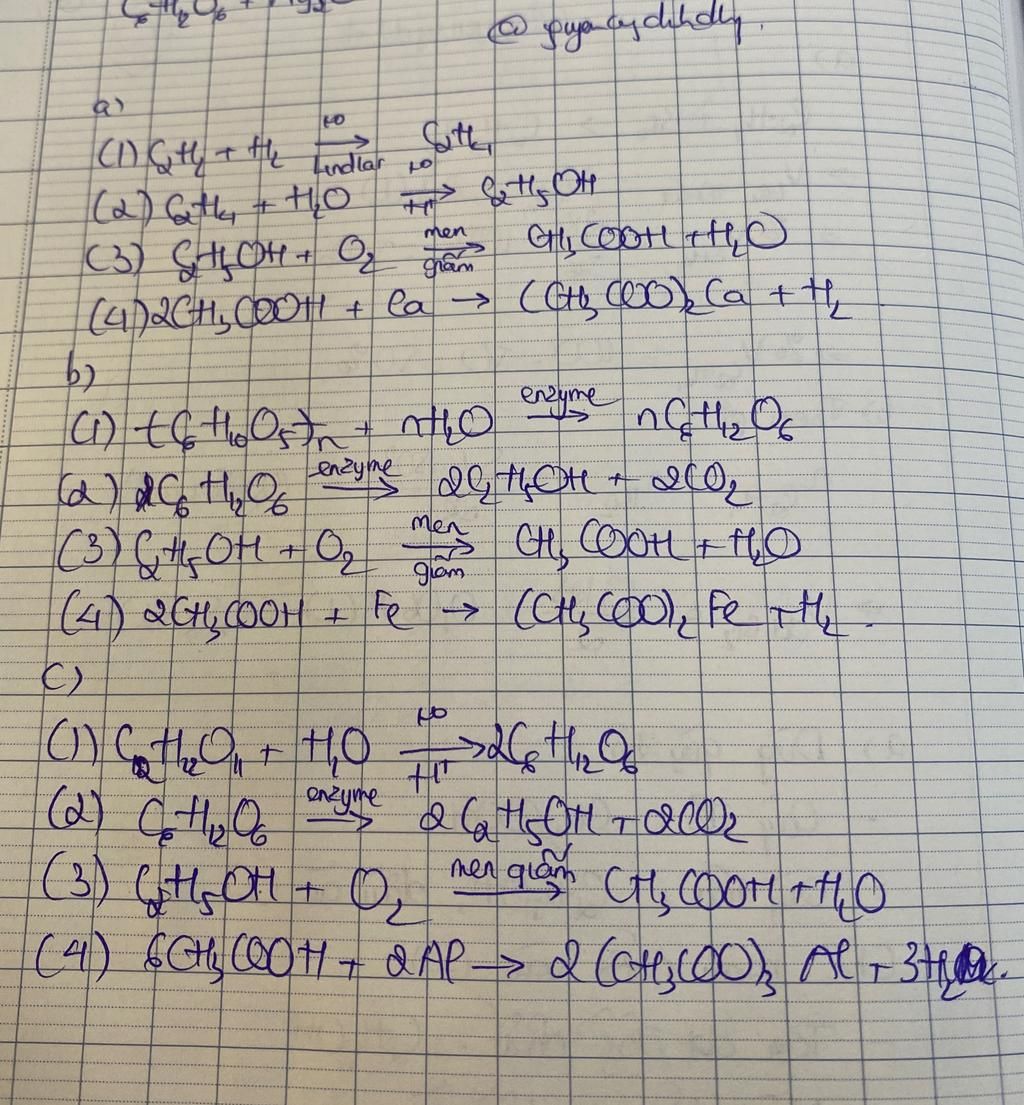 C₆H₁₂O₆ +
@
a)
(1) C₂H₂ + H₂ →(t°, Lindlar) C₂H₄
(2) C₂H₄ + H₂O →(t°, H⁺) C₂H₅OH
(3) C₂H₅OH + O₂ →(men giấm) CH₃COOH + H₂O
(4) 2CH₃COOH + Ca → (CH₃COO)₂Ca + H₂
b)
(1) (C₆H₁₀O₅)n + nH₂O →(enzyme) nC₆H₁₂O₆
(2) C₆H₁₂O₆ →(enzyme) 2C₂H₅OH + 2CO₂
(3) C₂H₅OH + O₂ →(men giấm) CH₃COOH + H₂O
(4) 2CH₃COOH + Fe → (CH₃COO)₂Fe + H₂.
c)
(1) C₁₂H₂₂O₁₁ + H₂O →(t°, H⁺) 2C₆H₁₂O₆
(2) C₆H₁₂O₆ →(enzyme) 2C₂H₅OH + 2CO₂
(3) C₂H₅OH + O₂ →(men giấm) CH₃COOH + H₂O
(4) 6CH₃COOH + 2Al → 2(CH₃COO)₃Al + 3H₂.